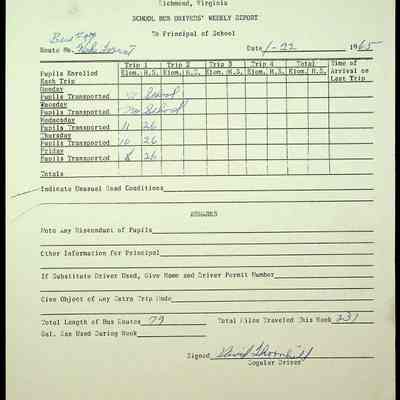 Richmond, Virginia
SCHOOL BUS DRIVERS' WEEKLY REPORT
To Principal of School
Bus
Route No. Date 1-22 1965
Trip 1 Trip 2 Trip 3 Trip 4 Total Time of
Pupils Enrolled Elem. H.S. Elem. H.S. Elem. H.S. Elem. H.S. Elem. H.S. Arrival on
Each Trip Last Trip
Monday
Pupils Transported No School
Tuesday
Pupils Transported No School
Wednesday
Pupils Transported 11 26
Thursday
Pupils Transported 10 26
Friday
Pupils Transported 8 26
Totals
Indicate Unusual Road Conditions
REMARKS
Note Any Misconduct of Pupils
Other Information for Principal
If Substitute Driver Used, Give Name and Driver Permit Number
Give Object of Any Extra Trip Made
Total Length of Bus Routes 79 Total Miles Traveled This Week 237
Gal. Gas Used During Week
Signed David Thornhill
Regular Driver